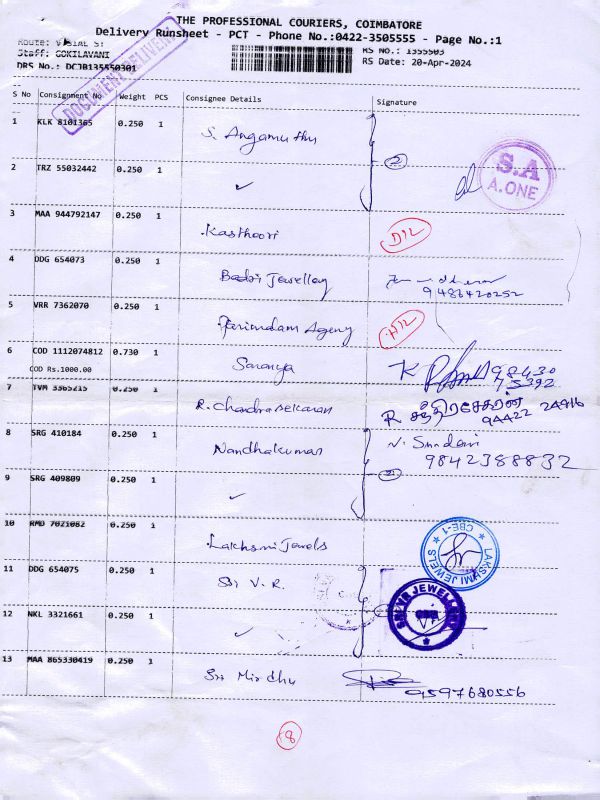 THE PROFESSIONAL COURIERS, COIMBATORE
Delivery Runsheet - PCT - Phone No.:0422-3505555 - Page No.:1
Staff: GOKILAVANI
RS No.: 1355503
DRS No.: DCJB135550301
RS Date: 20-Apr-2024
DOCUMENT DELIVERY
S No Consignment No Weight PCS Consignee Details Signature
1 KLK 8101365 0.250 1 S. Angamuthu
2
2 TRZ 55032442 0.250 1 ✓
S.A
A.ONE
3 MAA 944792147 0.250 1 Kasthoori D/L
4 DDG 654073 0.250 1 Jewellery
9486420252
5 VRR 7362070 0.250 1 Agency
6 COD 1112074812 0.730 1 Saranya 98430
COD Rs.1000.00 75392
7 TVM 3365215 0.250 1 R. Chandrasekaran R சந்திரசேகரன்
94422 24916
8 SRG 410184 0.250 1 Nandhakumar N. Sundari
9842388832
2
9 SRG 409809 0.250 1 ✓
10 RMD 7021082 0.250 1 Lakshmi Jewels
LAKSHMI JEWELS CBE-1
11 DDG 654075 0.250 1 Sri V.R.
SRI VR JEWELLERY
12 NKL 3321661 0.250 1 ✓
13 MAA 865330419 0.250 1 Sri Mirdhu
9597680556
8